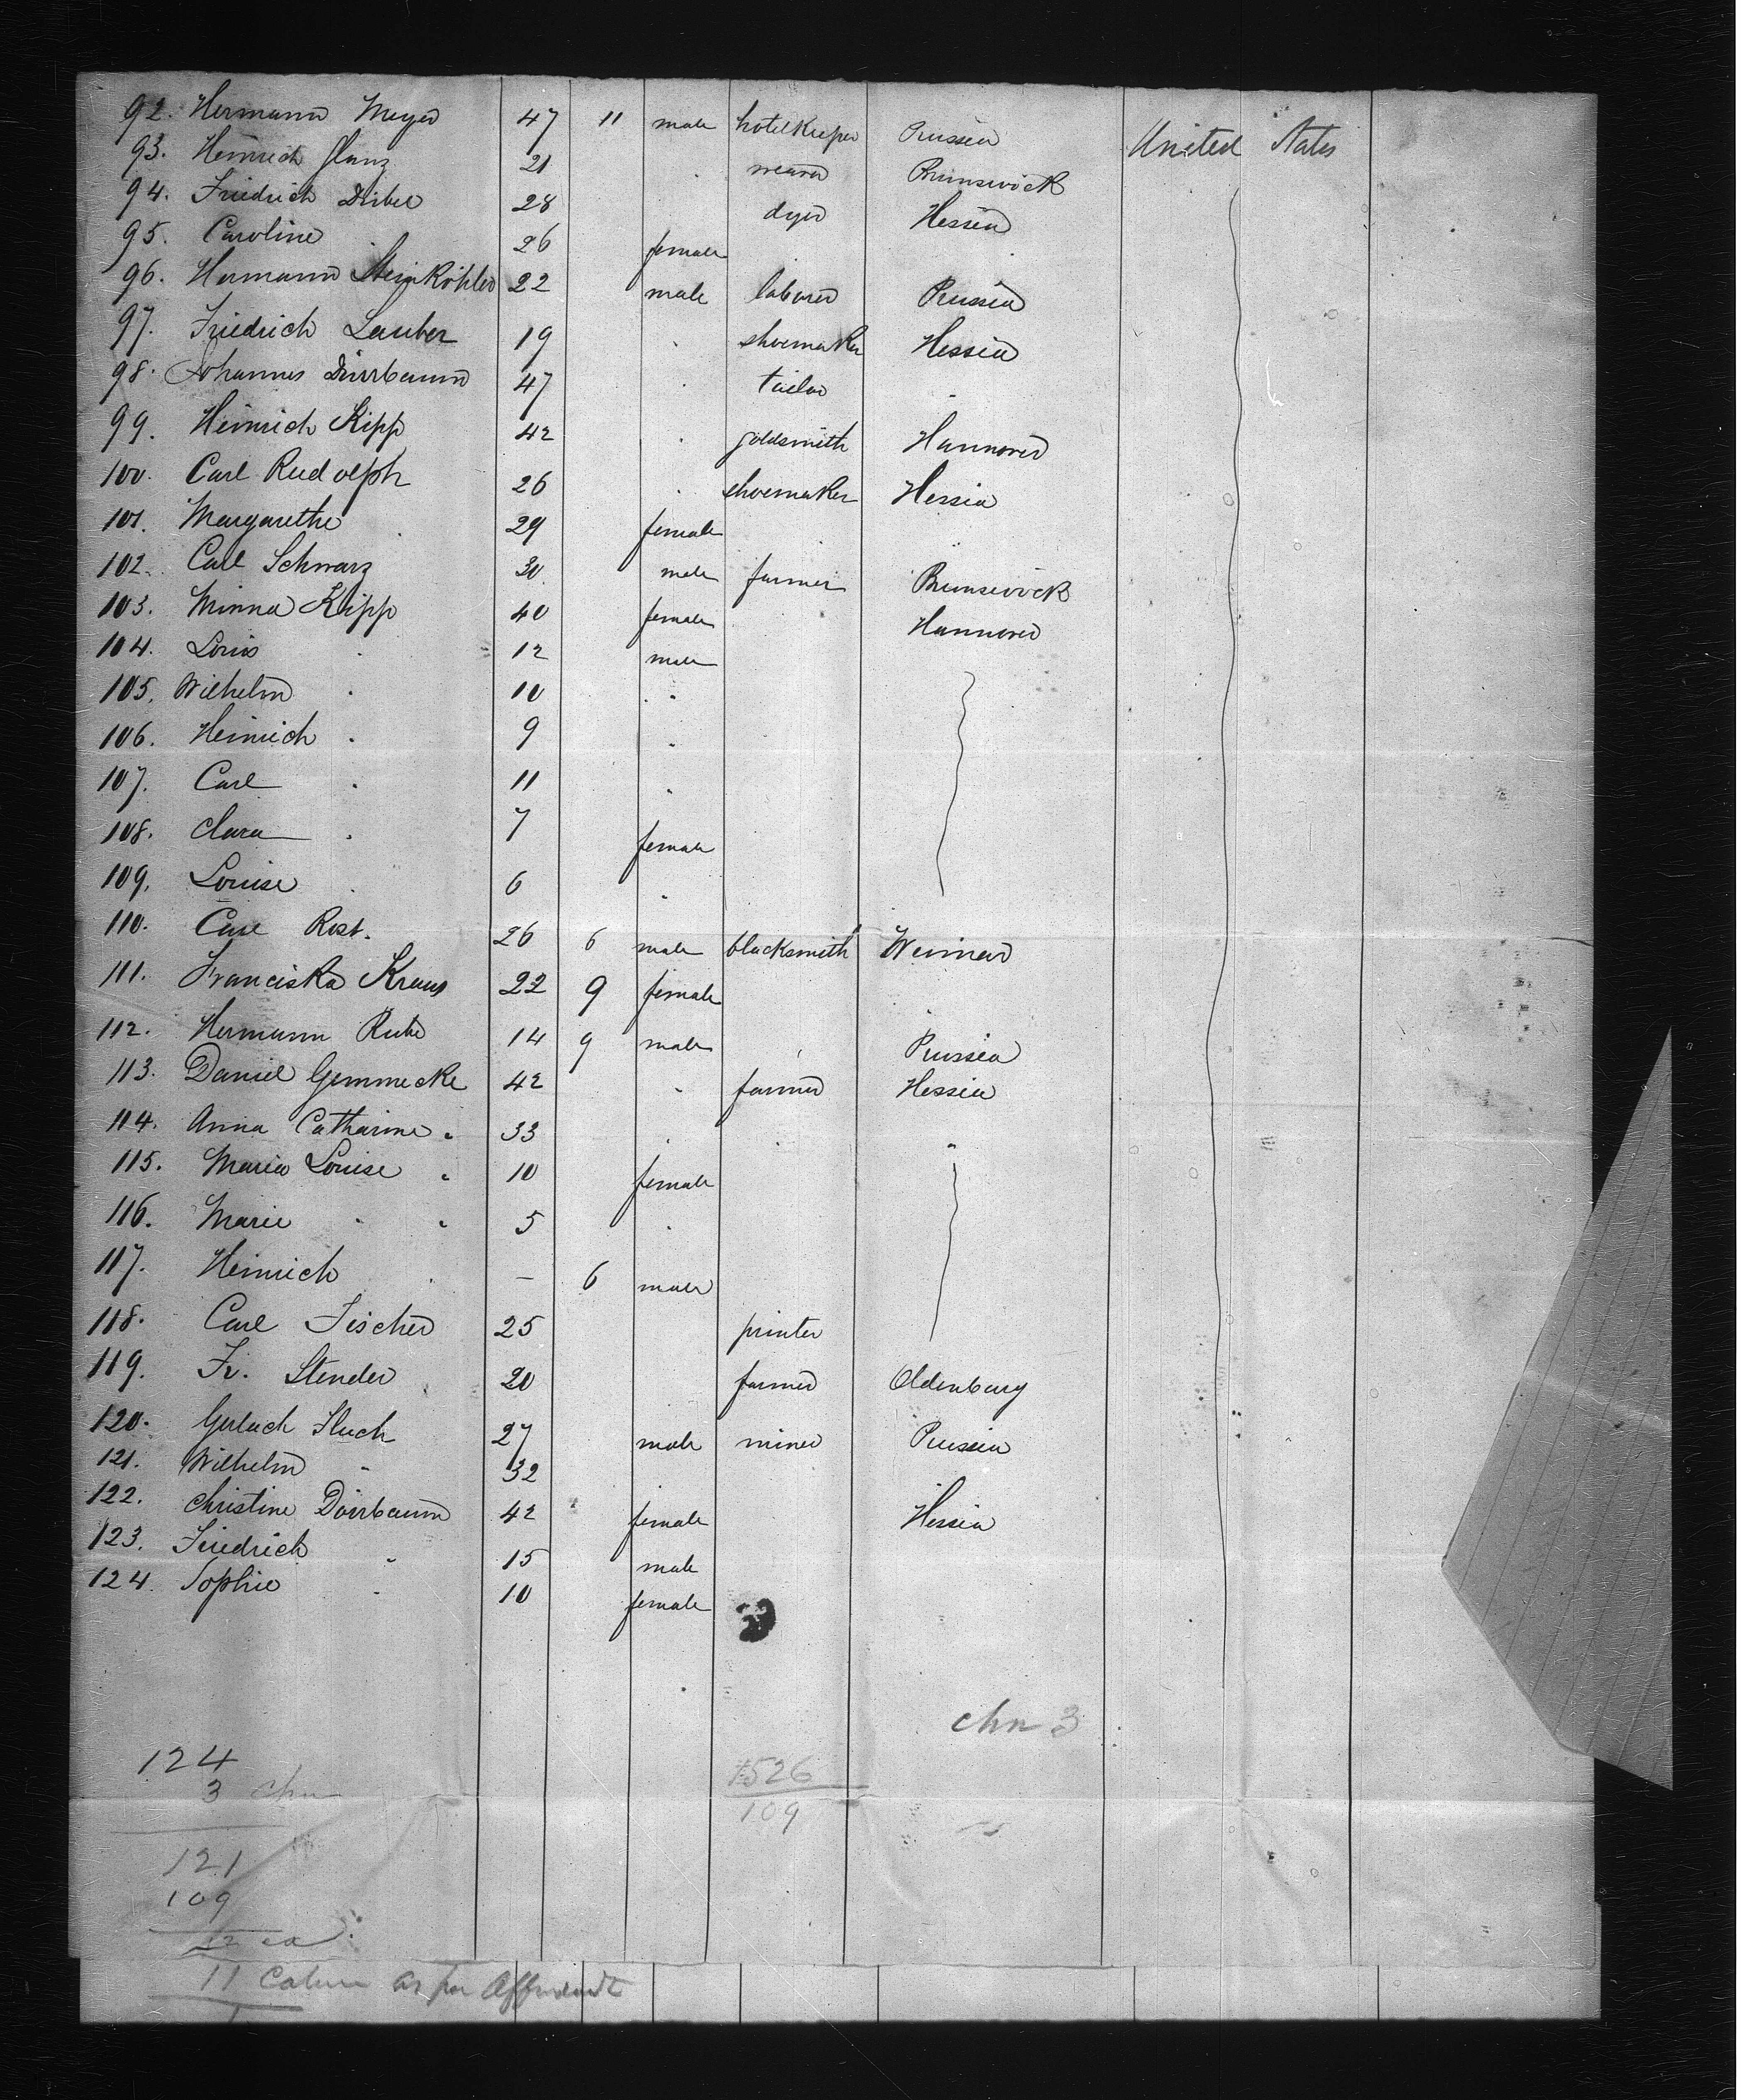 92. Hermann Meyer 47 11 male hotelkeeper Prussia United States
93. Heinrich Glanz 21 . weaver Brunswick
94. Friedrich 28 dyer Hessia
95. Caroline " 26 female "
96. Hermann Steinköhler 22 male laborer Prussia
97. Friedrich Lauber 19 . shoemaker Hessia
98. Johannes Dürrbaum 47 . tailor "
99. Heinrich Kipp 42 . goldsmith Hannover
100. Carl Rudolph 26 . shoemaker Hessia
101. Margarethe " 29 female "
102. Carl Schwarz 30 male farmer Brunswick
103. Minna Kipp 40 female Hannover
104. Louis " 12 male
105. Wilhelm " 10 "
106. Heinrich " 9 "
107. Carl " 11 "
108. Clara " 7 female
109. Louise " 6 "
110. Carl Rost. 26 6 male blacksmith Weimar
111. Franciska Kraus 22 9 female "
112. Hermann Rube 14 9 male Prussia
113. Daniel Gemmecke 42 " farmer Hessia
114. Anna Catharine " 33 " "
115. Maria Louise " 10 female
116. Marie " " 5 "
117. Heinrich " — 6 male
118. Carl Fischer 25 printer
119. Fr. Stender 20 farmer Oldenburg
120. Gerlach Fluch 27 male miner Prussia
121. Wilhelm " 32
122. Christine Dürrbaum 42 female Hessia
123. Friedrich " 15 male
124. Sophie " 10 female
chn 3
124 1526
3 chn 109
121
109
12 ca
11 Cabin as per Affidavit